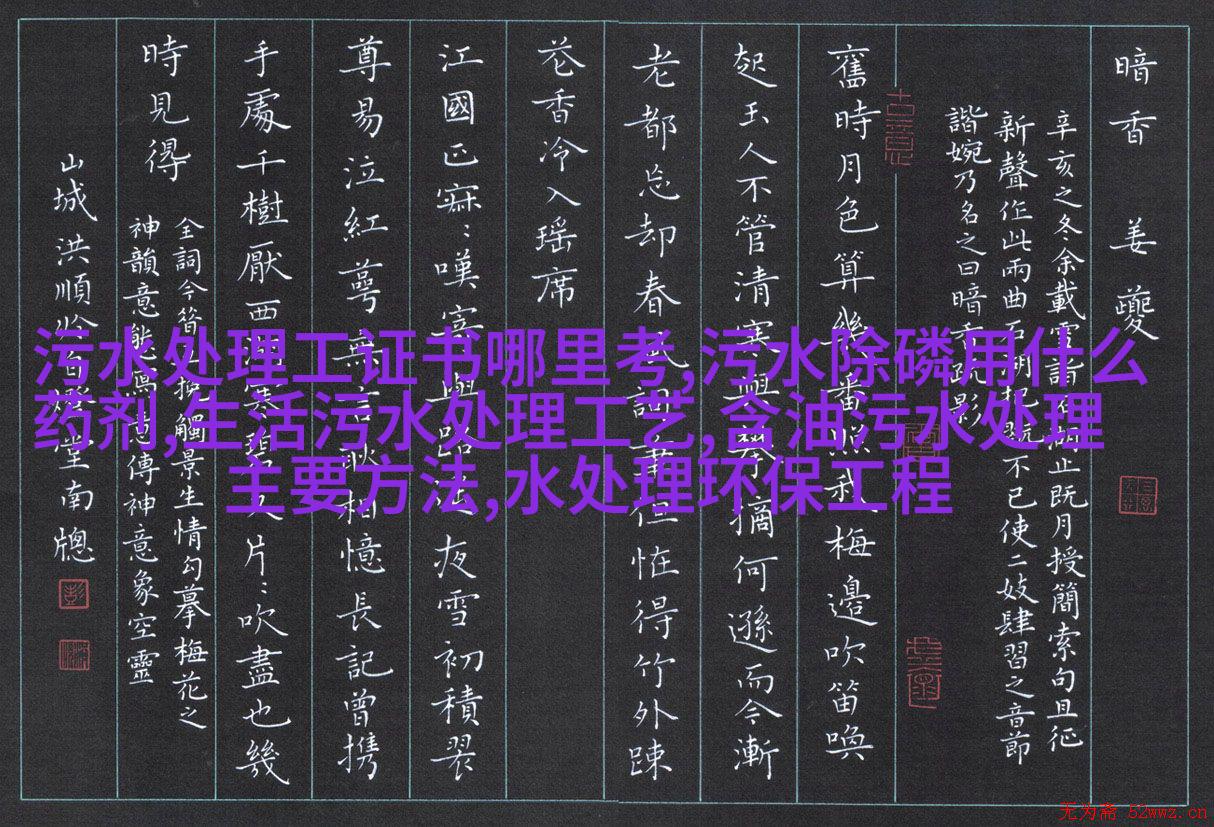 暗香 姜夔
辛亥之冬余載雪詣石湖止既月授簡索句且征
新聲作此兩曲石湖把玩不已使二妓肆習之音節
諧婉乃名之曰暗香疏影
舊時月色算幾番照我梅邊吹笛喚
起玉人不管清寒與攀摘何遜而今漸
老都忘却春風詞筆但恠得竹外踈
花香冷入瑶席
江國正寂〻嘆寄與路遥夜雪初積翠
尊易泣紅萼無言耿相憶長記曾携
手處千樹壓西湖寒碧又片〻吹盡也幾
時見得
全詞今昔換觸景生情勾摹梅花之
神韻意態寫志傳神意象空靈
山城洪順堂南牕
古意
污水处理工证书哪里考,污水除磷用什么
药剂,生活污水处理工艺,含油污水处理
主要方法,水处理环保工程
无为斋 52wwz.cn